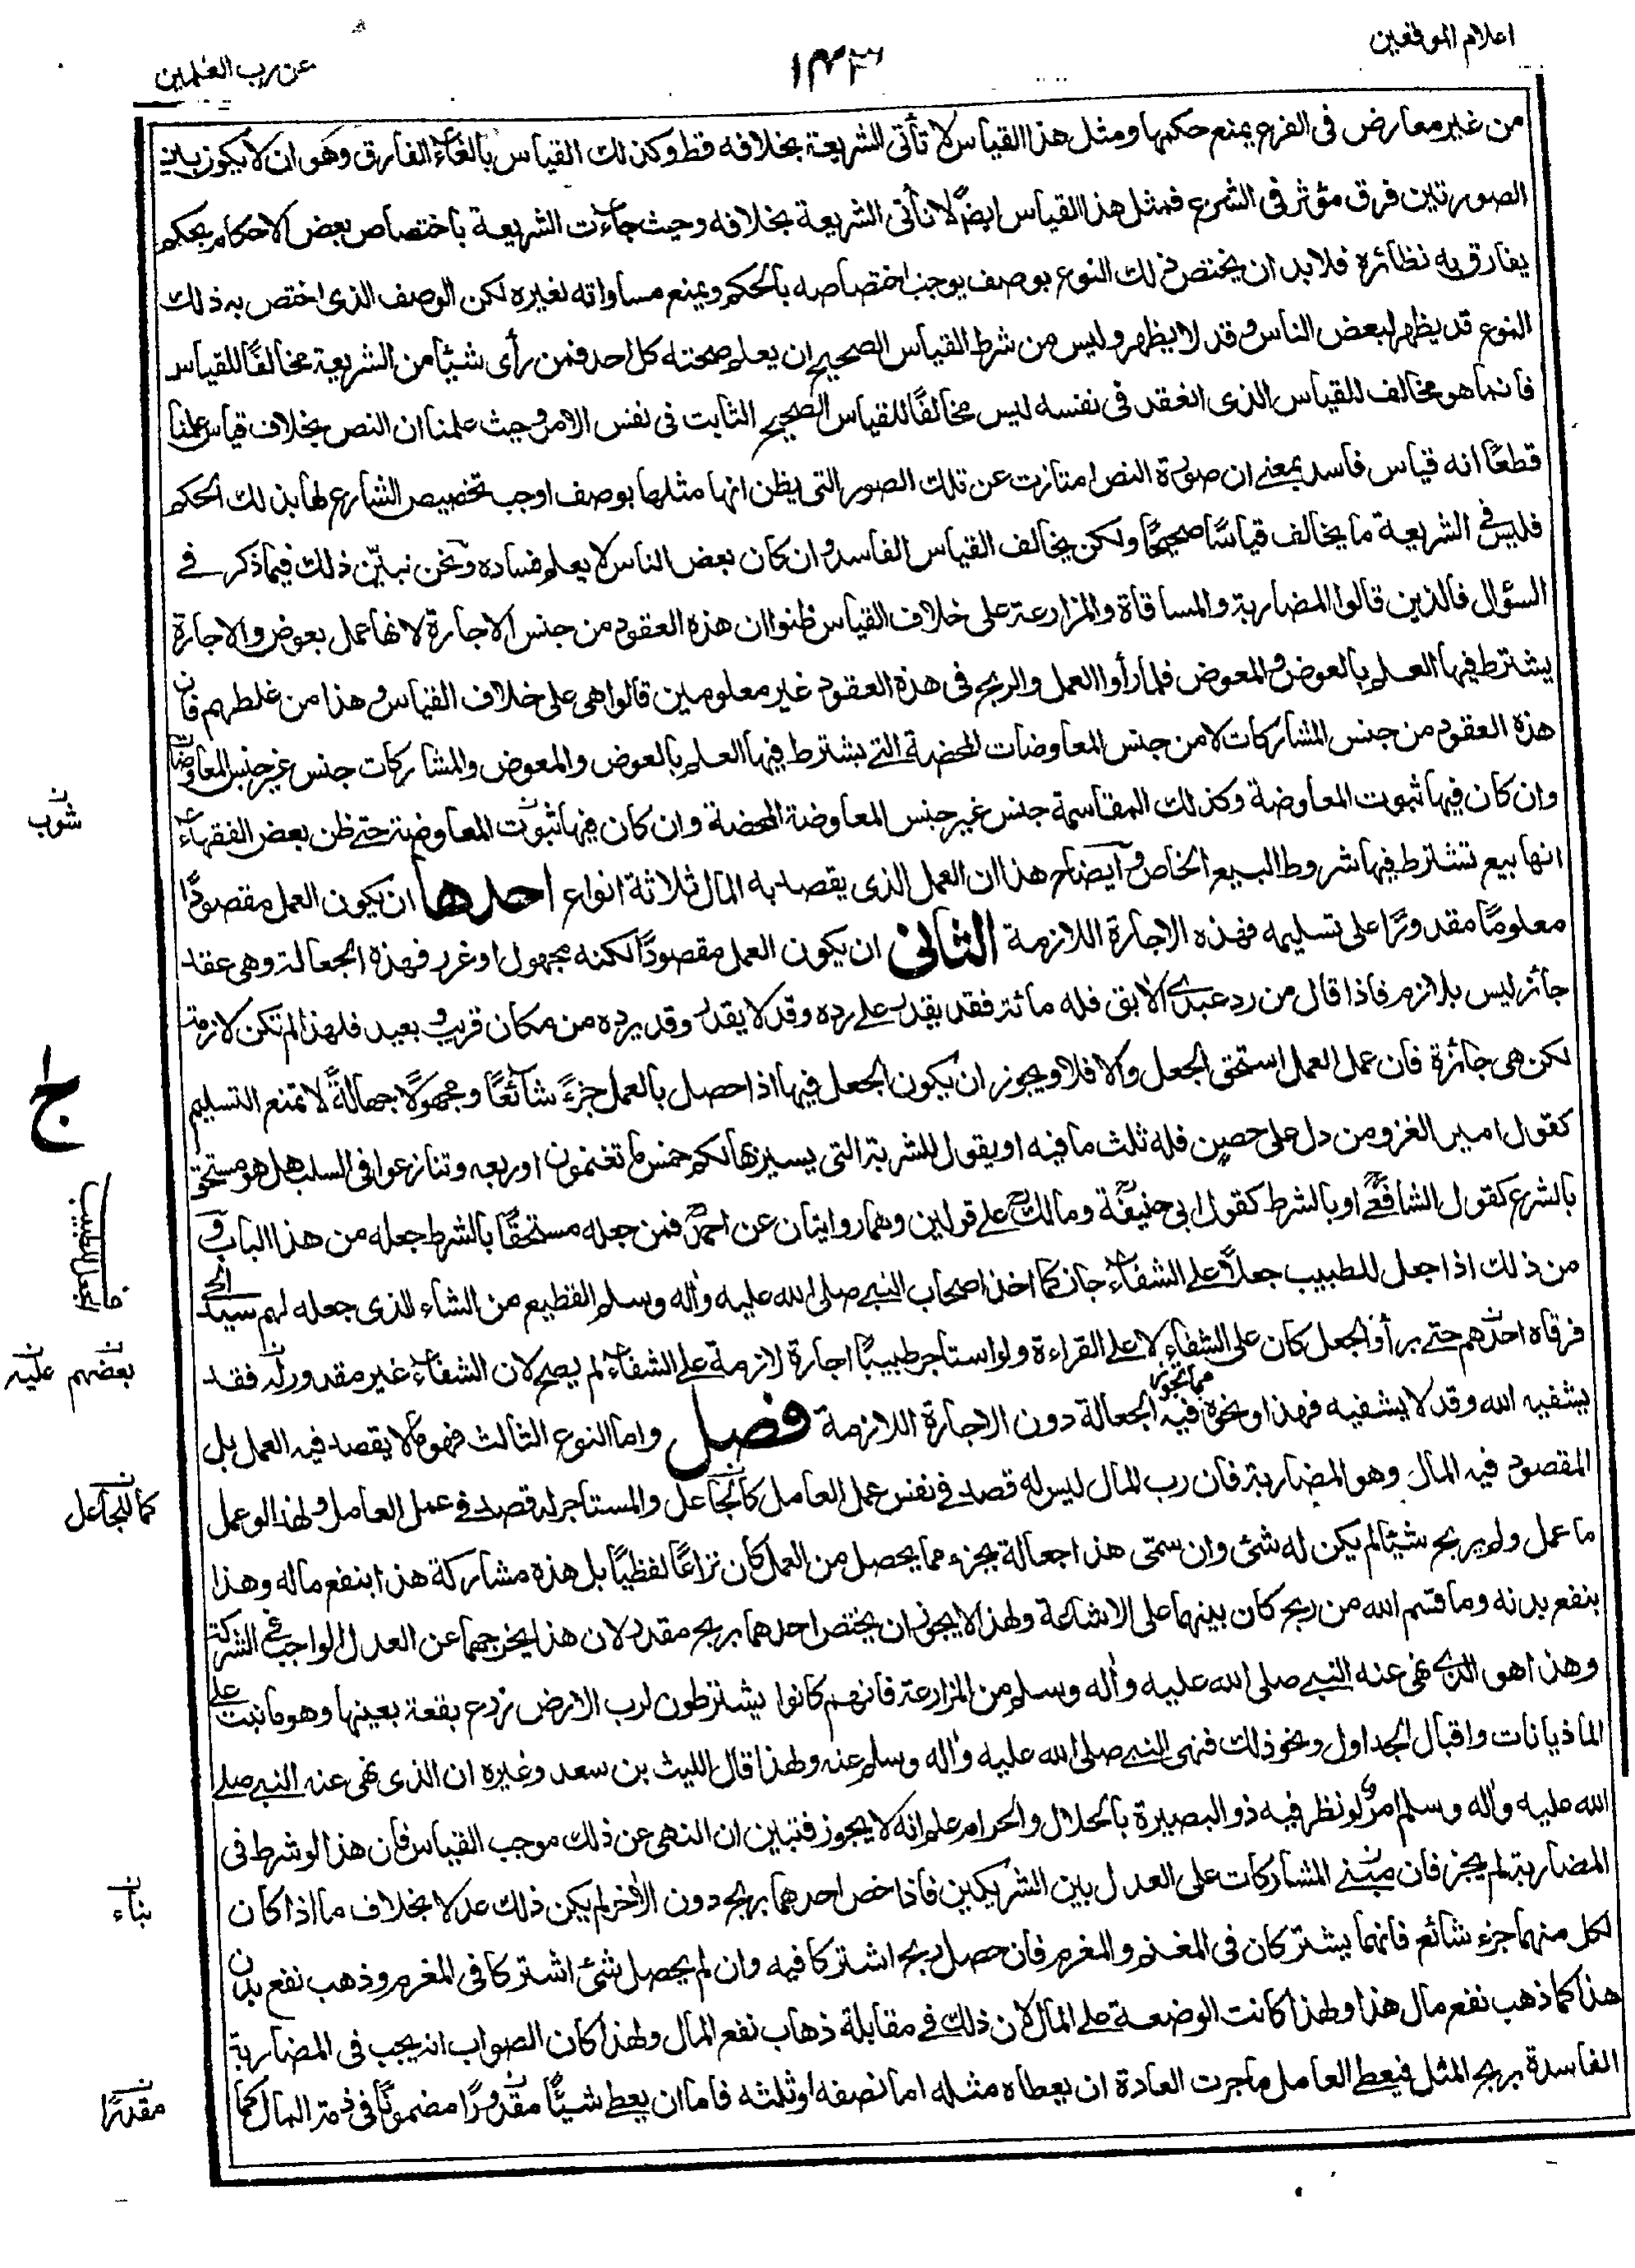 اعلام الموقعين
١٤٣
عن رب العلمين
من غير معارض فى الفرع يمنع حكمها ومثل هذا القياس لا تأتى الشريعة بخلافه قط وكذلك القياس بالغاء الفارق وهو ان لا يكون بين
الصورتين فرق مؤثر فى الشرع فمثل هذا القياس ايضًا لا تأتى الشريعة بخلافه وحيث جاءت الشريعة باختصاص بعض الاحكام بحكم
يفارق به نظائره فلا بد ان يختص ذلك النوع بوصف يوجب اختصاصه بالحكم ويمنع مساواته لغيره لكن الوصف الذى اختص به ذلك
النوع قد يظهر لبعض الناس وقد لا يظهر وليس من شرط القياس الصحيح ان يعلم صحته كل احد فمن رأى شيئًا من الشريعة مخالفًا للقياس
فانما هو مخالف للقياس الذى انعقد فى نفسه ليس مخالفًا للقياس الصحيح الثابت فى نفس الامر وحيث علمنا ان النص بخلاف قياس علمنا
قطعًا انه قياس فاسد بمعنے ان صورة النص امتازت عن تلك الصور التى يظن انها مثلها بوصف اوجب تخصيص الشارع لها بذلك الحكم
فليس فى الشريعة ما يخالف قياسًا صحيحًا ولكن يخالف القياس الفاسد وان كان بعض الناس لا يعلم فساده ونحن نبيّن ذلك فيما ذكر فے
السؤال فالذين قالوا المضاربة والمساقاة والمزارعة على خلاف القياس ظنوا ان هذه العقود من جنس الاجارة لانها عمل بعوض والاجارة
يشترط فيها العلم بالعوض والمعوض فلما رأوا العمل والربح فى هذه العقود غير معلومين قالوا هى على خلاف القياس وهذا من غلطهم فان
هذه العقود من جنس المشاركات لا من جنس المعاوضات المحضة التے يشترط فيها العلم بالعوض والمعوض والمشاركات جنس غير جنس المعاوضات
وان كان فيها ثبوت المعاوضة وكذلك المقاسمة جنس غير جنس المعاوضة المحضة وان كان فيها ثبوت المعاوضة حتے ظن بعض الفقهاء
شوب
انها بيع تشترط فيها شروط البيع الخاص وايضاح هذا ان العمل الذى يقصد به المال ثلاثة انواع احدها ان يكون العمل مقصودًا
معلومًا مقدورًا على تسليمه فهذه الاجارة اللازمة الثانى ان يكون العمل مقصودًا لكنه مجهول او غرر فهذه الجعالة وهى عقد
جائز ليس بلازم فاذا قال من رد عبدے الابق فله مائة فقد يقدر على رده وقد لا يقدر وقد يرده من مكان قريب وبعيد فلهذا لم تكن لازمة
لكن هى جائزة فان عمل العمل استحق الجعل والا فلا ويجوز ان يكون الجعل فيها اذا حصل بالعمل جزءً شائعًا ومجهولًا جهالةً لا تمنع التسليم
ج
كقول امير الغزو من دل على حصن فله ثلث ما فيه او يقول للسرية التى يسيرها لكم خمس ما تغنمون او ربعه وتنازعوا فى السلب هل هو مستحق
بالشرع كقول الشافعى او بالشرط كقول ابى حنيفة ومالك على قولين وهما روايتان عن احمد فمن جعله مستحقًا بالشرط جعله من هذا الباب و
من ذلك اذا جعل للطبيب جعلًا على الشفاء جاز كما اخذ اصحاب النبى صلى الله عليه واله وسلم القطيع من الشاء الذى جعله لهم سيد الحى
الجعل للطبيب
فرقاه احدهم حتے برأ والجعل كان على الشفاء لا على القراءة ولو استاجر طبيبًا اجارة لازمة على الشفاء لم يصح لان الشفاء غير مقدور له فقد
بعضهم عليه
يشفيه الله وقد لا يشفيه فهذا ونحوه مما تجوز فيه الجعالة دون الاجارة اللازمة فصل واما النوع الثالث فهو ما لا يقصد فيه العمل بل
المقصود فيه المال وهو المضاربة فان رب المال ليس له قصد فى نفس عمل العامل كالجاعل والمستاجر له قصد فى عمل العامل ولهذا لو عمل
كما للجاعل
ما عمل ولم يربح شيئًا لم يكن له شئ وان سمّى هذا جعالة بجزء مما يحصل من العمل كان نزاعًا لفظيًا بل هذه مشاركة هذا بنفع ماله وهذا
بنفع بدنه وما قسم الله من ربح كان بينهما على الاشاعة ولهذا لا يجوز ان يختص احدهما بربح مقدر لان هذا يخرجهما عن العدل الواجب فى الشركة
وهذا هو الذے نهى عنه النبى صلى الله عليه واله وسلم من المزارعة فانهم كانوا يشترطون لرب الارض زرع بقعة بعينها وهو ما نبت على
الماذيانات واقبال الجداول ونحو ذلك فنهى النبى صلى الله عليه واله وسلم عنه ولهذا قال الليث بن سعد وغيره ان الذى نهى عنه النبى صلى
الله عليه واله وسلم امر لو نظر فيه ذو البصيرة بالحلال والحرام علم انه لا يجوز فتبين ان النهى عن ذلك موجب القياس فان هذا لو شرط فى
المضاربة لم يجز فان مبنے المشاركات على العدل بين الشريكين فاذا خص احدهما بربح دون الاخر لم يكن ذلك عدلا بخلاف ما اذا كان
بناء
لكل منهما جزء شائع فانهما يشتركان فى المغنم والمغرم فان حصل ربح اشتركا فيه وان لم يحصل شئ اشتركا فى المغرم وذهب نفع بدن
هذا كما ذهب نفع مال هذا ولهذا كانت الوضعية على المال لان ذلك فى مقابلة ذهاب نفع المال ولهذا كان الصواب انه يجب فى المضاربة
الفاسدة ربح المثل فيعطى العامل ما جرت العادة ان يعطاه مثله اما نصفه او ثلثه فاما ان يعطى شيئًا مقدورًا مضمونًا فى ذمة المال كما
مقدرًا